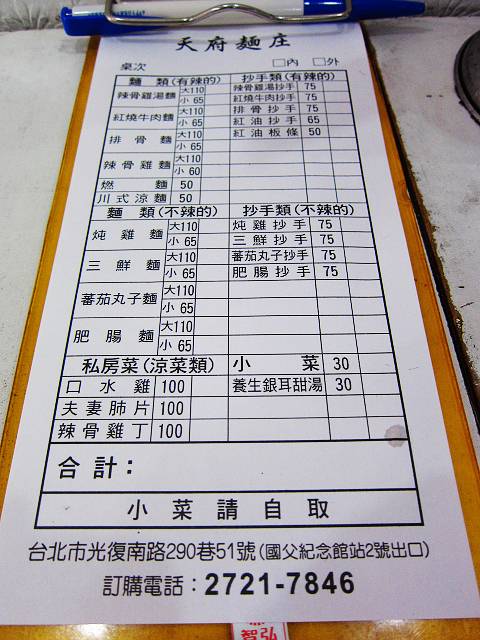 天府麵庄
桌次 □內 □外
麵類(有辣的) 抄手類(有辣的)
辣骨雞湯麵 大110 小 65 辣骨雞湯抄手 75
紅燒牛肉抄手 75
紅燒牛肉麵 大110 小 65 排骨抄手 75
紅油抄手 65
排骨麵 大110 小 65 紅油板條 50
辣骨雞麵 大110 小 60
燃麵 50
川式涼麵 50
麵類(不辣的) 抄手類(不辣的)
炖雞麵 大110 小 65 炖雞抄手 75
三鮮抄手 75
三鮮麵 大110 小 65 蕃茄丸子抄手 75
肥腸抄手 75
蕃茄丸子麵 大110 小 65
肥腸麵 大110 小 65
私房菜(涼菜類) 小菜 30
口水雞 100 養生銀耳甜湯 30
夫妻肺片 100
辣骨雞丁 100
合計:
小菜請自取
台北市光復南路290巷51號(國父紀念館站2號出口)
訂購電話:2721-7846